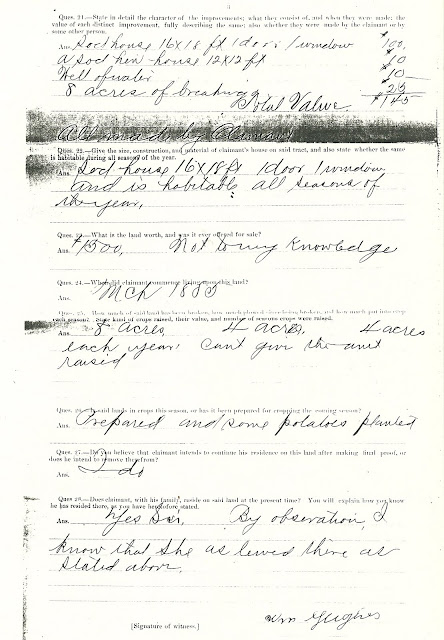 Ques. 21.—State in detail the character of the improvements; what they consist of, and when they were made; the
value of each distinct improvement, fully describing the same; also whether they were made by the claimant or by
some other person.
Ans. Sod house 16 x 18 ft 1 door 1 window $100,
a Sod hen house 12 x 12 ft $10
Well of water $10
8 acres of breaking $25
Total Value $145
All made by Claimant
Ques. 22.—Give the size, construction, and material of claimant's house on said tract, and also state whether the same
is habitable during all seasons of the year.
Ans. Sod house 16 x 18 ft 1 door 1 window
and is habitable all seasons of
the year.
Ques. 23.—What is the land worth, and was it ever offered for sale?
Ans. $1500, Not to my Knowledge
Ques. 24.—When did claimant commence living upon this land?
Ans. Mch
Ques. 25.—How much of said land has been broken, how much
each season? State kind of crops raised, their value, and number of seasons crops were raised.
Ans. 8 acres, 4 acres, 4 acres
each year. Cant give the amt
raised
Ques. 26.—Is said lands in crops this season, or has it been prepared for cropping the coming season?
Ans. Prepared and some potatoes planted
Ques. 27.—Do you believe that claimant intends to continue his residence on this land after making final proof, or
does he intend to remove therefrom?
Ans. I do
Ques 28.—Does claimant, with his family, reside on said land at the present time? You will explain how you know
he has resided there, as you have heretofore stated.
Ans. Yes Sir, By observation, I
know that she as lewed there as
stated above.
Wm Hughes
[Signature of witness.]